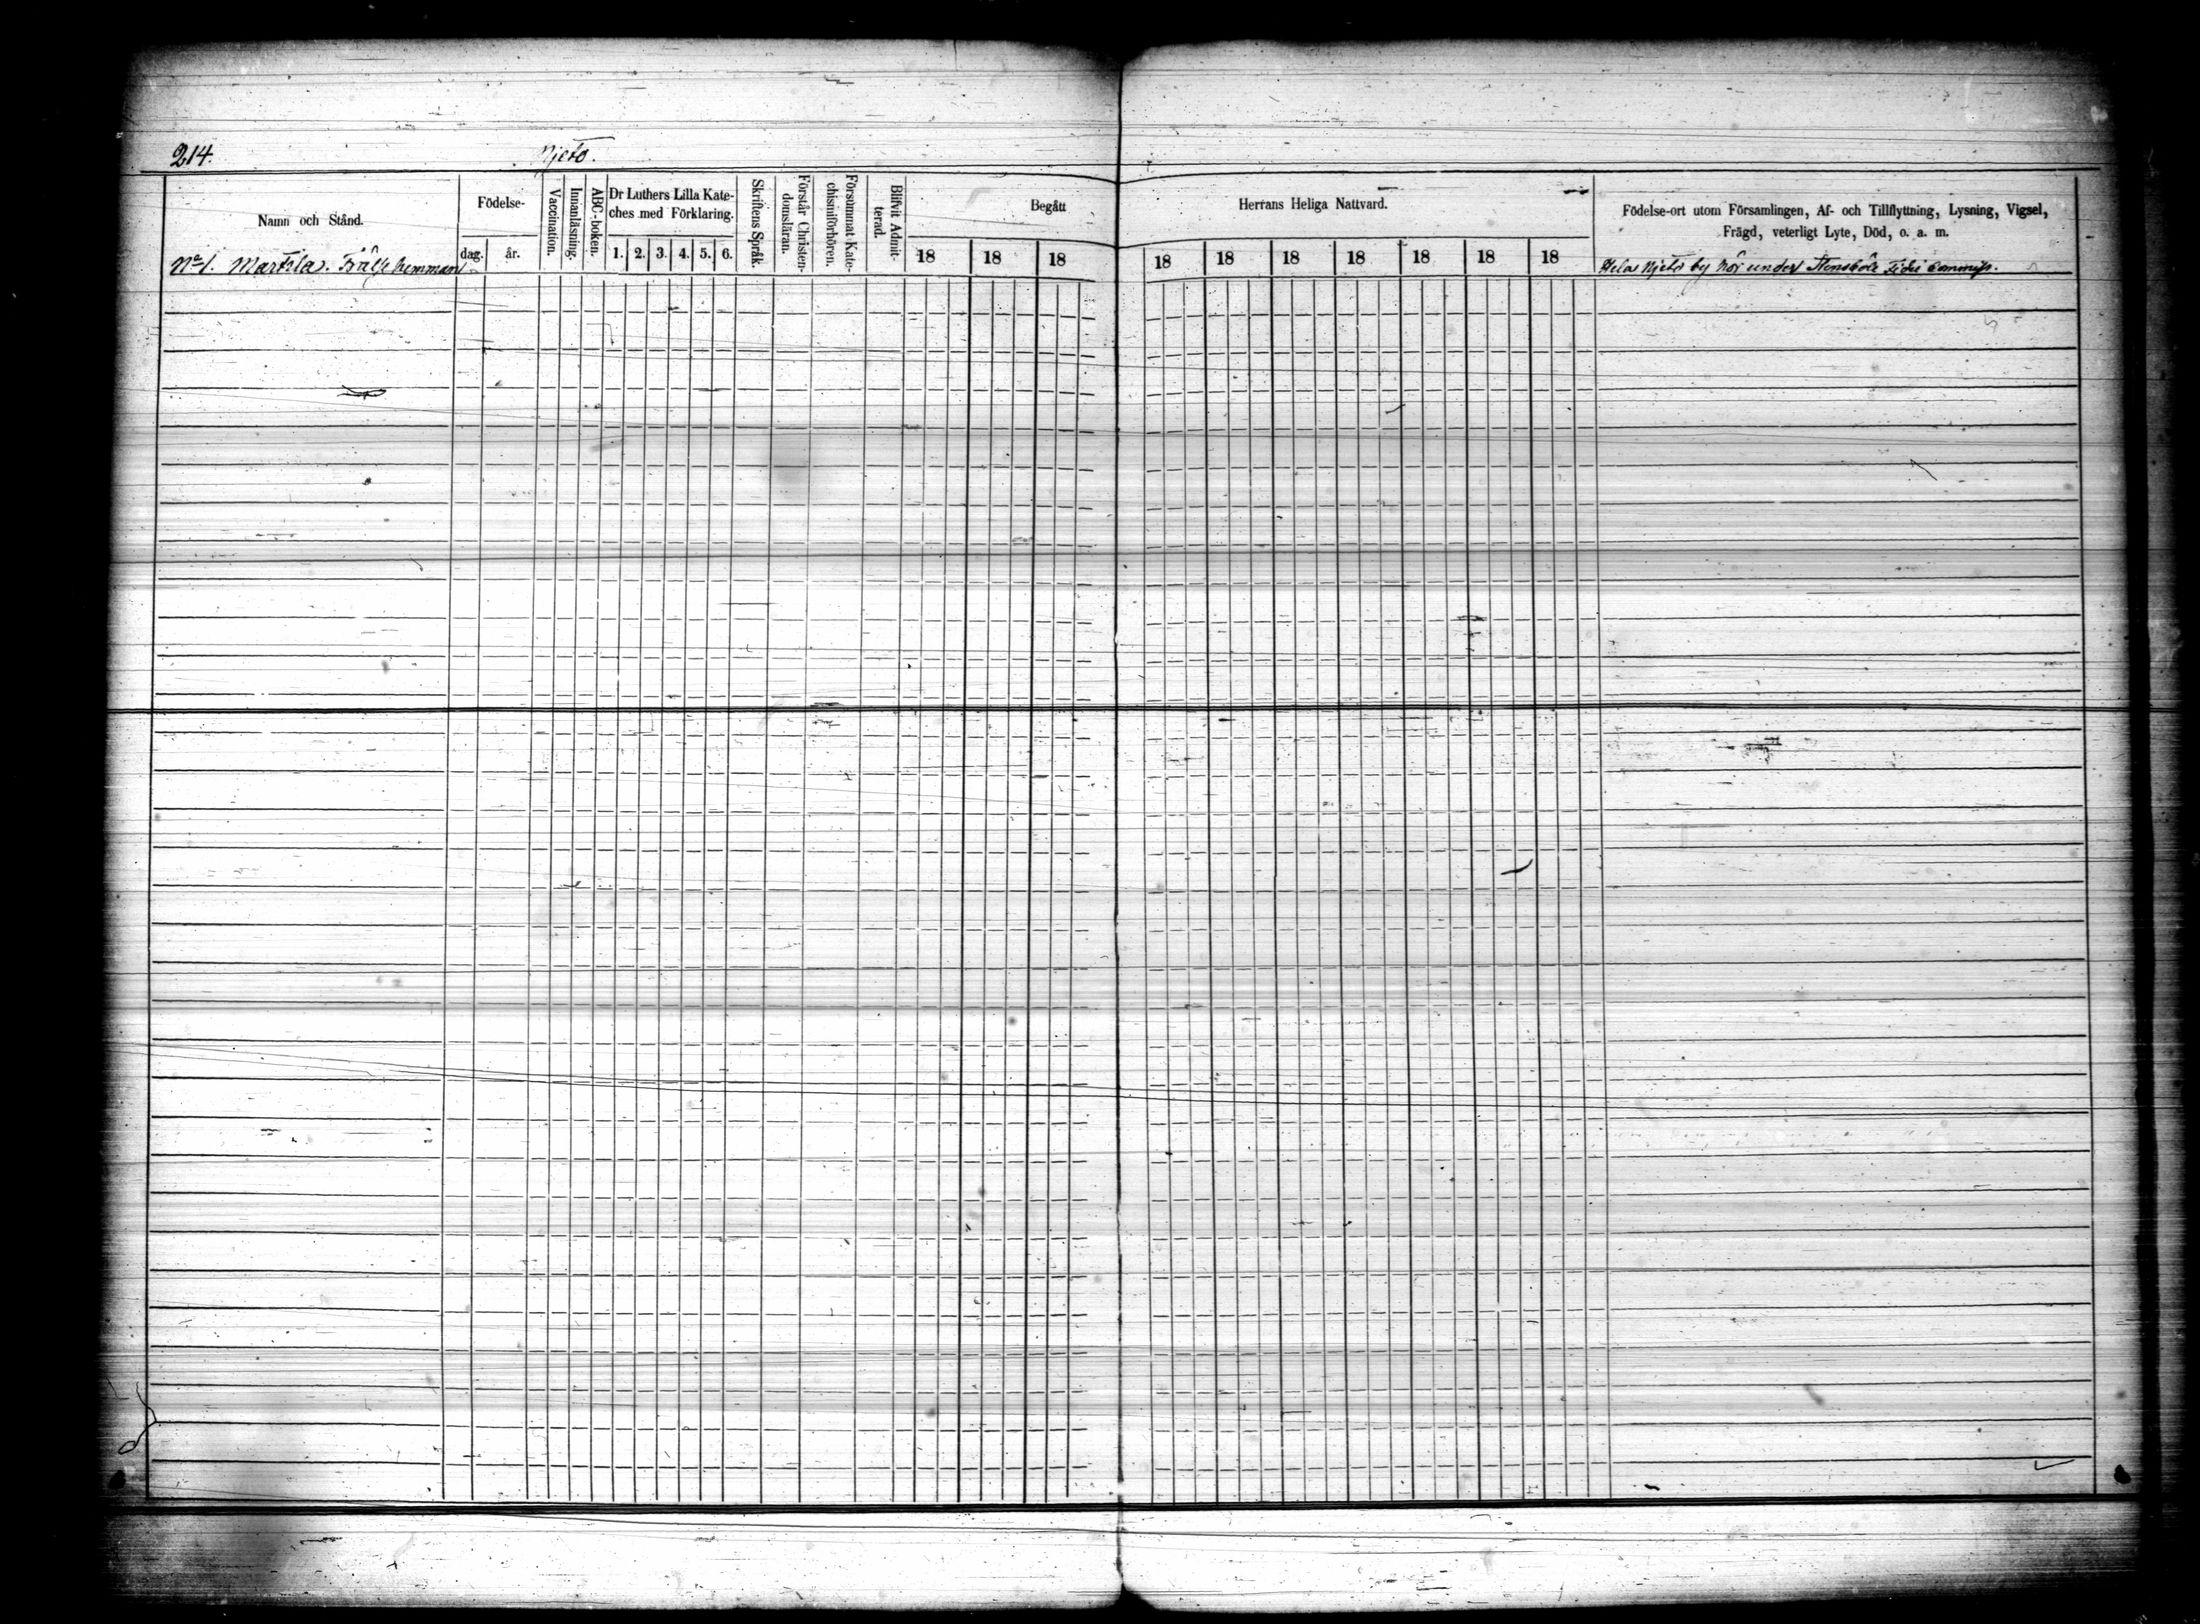 214.
Njetö.
Namn och Stånd.
Födelse-
dag.
år.
Vaccination.
Innanläsning.
ABC-boken.
Dr Luthers Lilla Kate-
ches med Förklaring.
1. 2. 3. 4. 5. 6.
Skriftens Språk.
Förstår Christen-
domsläran.
Försummat Kate-
chismiförhören.
Blifvit Admit-
terad.
Begått Herrans Heliga Nattvard.
18 18 18 18 18 18 18 18 18 18
Födelse-ort utom Församlingen, Af- och Tillflyttning, Lysning, Vigsel,
Frägd, veterligt Lyte, Död, o. a. m.
No 1. Martila. Frälse hemman
Hela Njetö by hör under Stensböle Fidei Commiss.